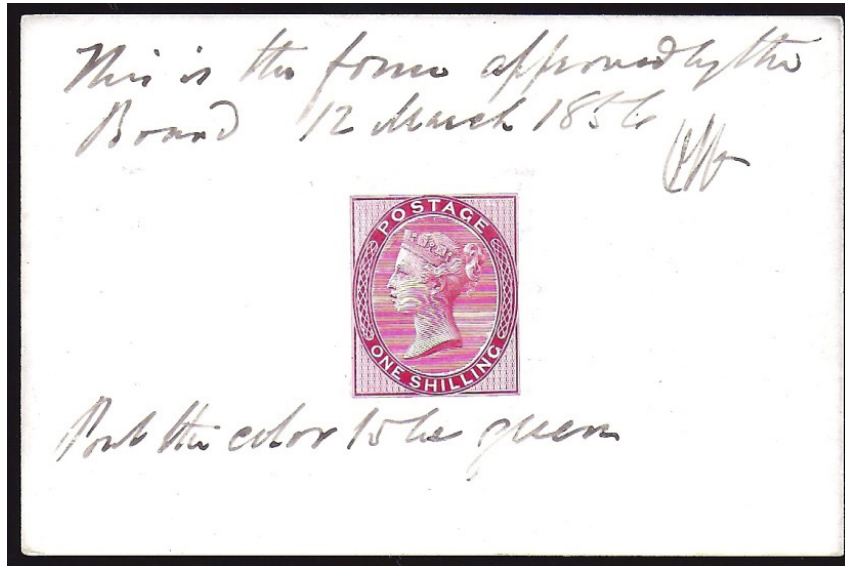 This is the form approved by the
Board 12 March 1856
POSTAGE
ONE SHILLING
But the color to be green